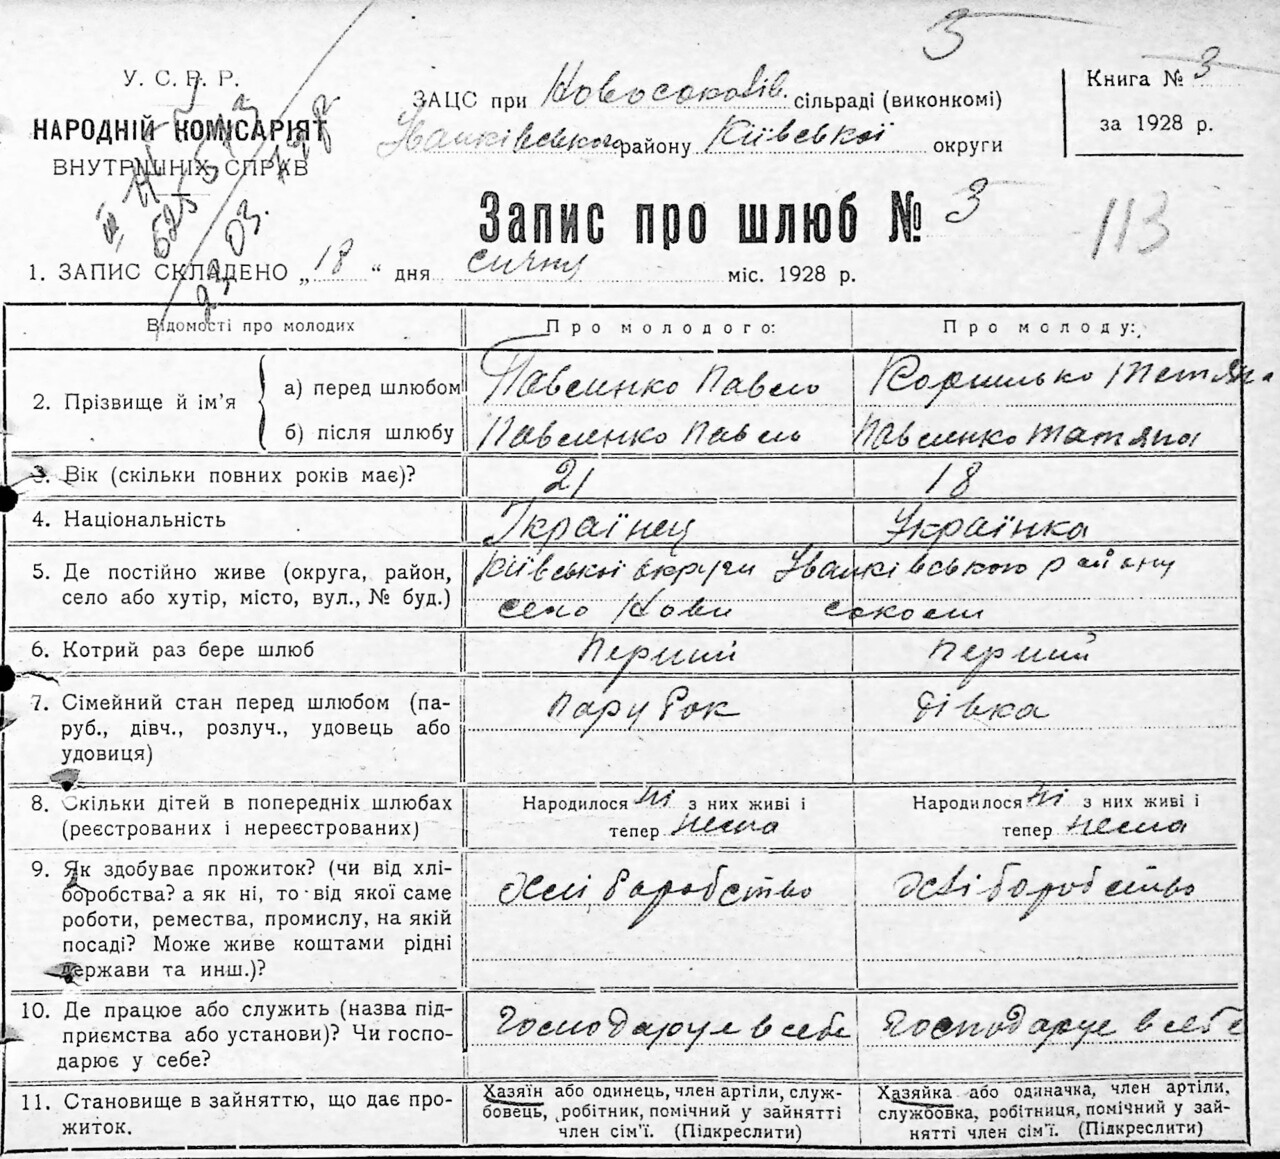 3
У. С. Р. Р.
НАРОДНІЙ КОМІСАРІЯТ
ВНУТРІШНІХ СПРАВ
ЗАЦС при Новосоколів. сільраді (виконкомі)
Іванківського району Київської округи
Книга № 3
за 1928 р.
Запис про шлюб № 3
113
1. ЗАПИС СКЛАДЕНО „18“ дня січня міс. 1928 р.
Відомості про молодих Про молодого: Про молоду:
2. Прізвище й ім’я
а) перед шлюбом Павленко Павло Татяна
б) після шлюбу Павленко Павло Павленко Татяна
3. Вік (скільки повних років має)? 21 18
4. Національність Українец Українка
5. Де постійно живе (округа, район, Київської округи Іванківського району
село або хутір, місто, вул., № буд.) село Нови соколи
6. Котрий раз бере шлюб Перший Перший
7. Сімейний стан перед шлюбом (па- парубок дівка
руб., дівч., розлуч., удовець або
удовиця)
8. Скільки дітей в попередніх шлюбах Народилося ні з них живі і Народилося ні з них живі і
(реєстрованих і нереєстрованих) тепер нема тепер нема
9. Як здобуває прожиток? (чи від хлі- Хліборобство Хліборобство
боробства? а як ні, то від якої саме
роботи, ремества, промислу, на якій
посаді? Може живе коштами рідні
держави та инш.)?
10. Де працює або служить (назва під- Господарює в себе Господарує в себе
приємства або установи)? Чи госпо-
дарює у себе?
11. Становище в зайняттю, що дає про- Хазяїн або одинець, член артілі, служ- Хазяйка або одиначка, член артілі,
житок. бовець, робітник, помічний у зайнятті службовка, робітниця, помічний у зай-
член сім’ї. (Підкреслити) нятті член сім’ї. (Підкреслити)